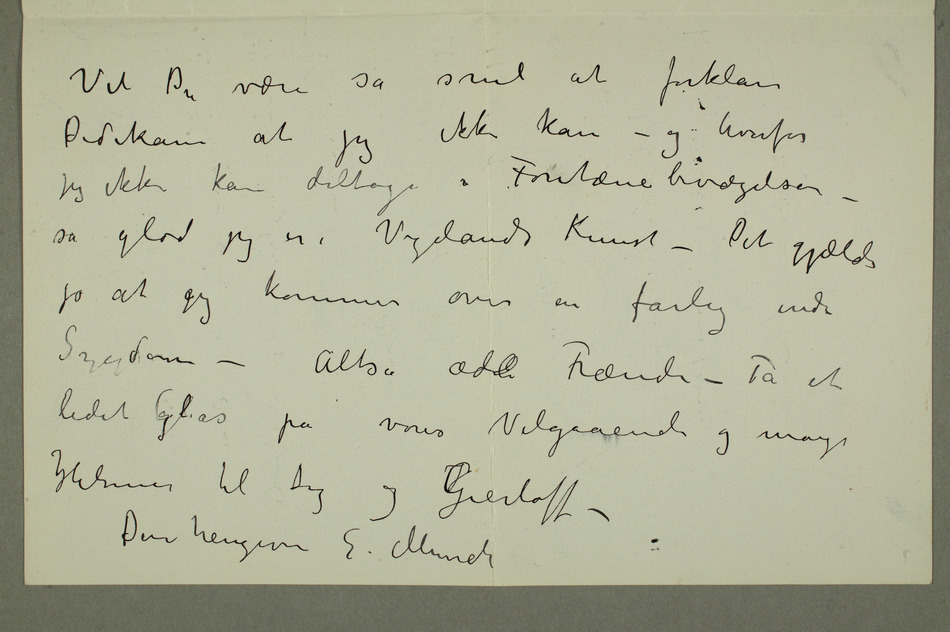 Vil Du være så snil at forklare
Dedekam at jeg ikke kan – og hvorfor
jeg ikke kan deltage i Fontænebevægelsen –
så glad jeg er i Vigelands Kunst – Det gjælder
jo at jeg kommer over en farlig indre
Sygdom – Altså ædle Frænde – Ta et
lidet Glas på vores Velgaaende og mange
Hilsener til dig og Gierløff –
Din hengivne E. Munch